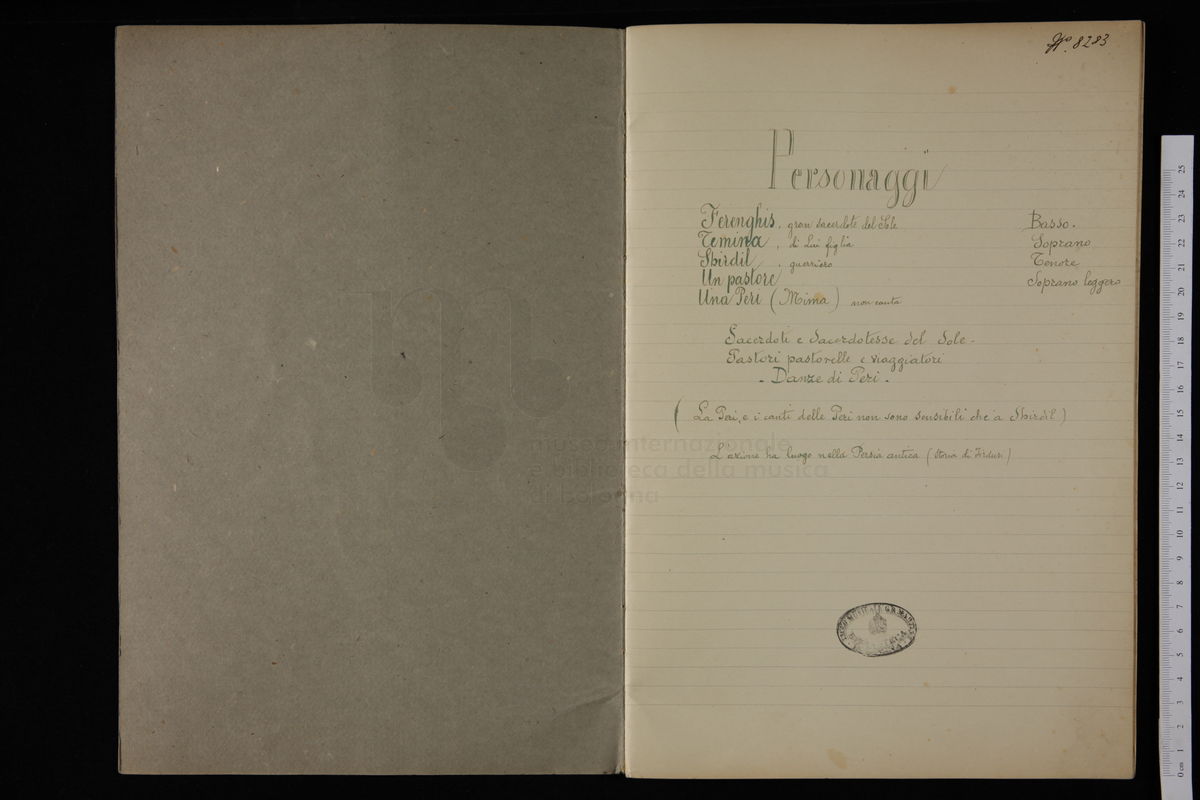 No. 8283
Personaggi
Ferenghis, gran sacerdote del Sole Basso.
Temina, di lui figlia Soprano
Sbirdil, guerriero Tenore
Un pastore Soprano leggero
Una Peri (Mima) non canta
Sacerdoti e Sacerdotesse del Sole.
Pastori pastorelle e viaggiatori
- Danze di Peri.
(La Peri, e i canti delle Peri non sono sensibili che a Sbirdil)
L'azione ha luogo nella Persia antica (Storia di Firdusi)
museo internazionale
e biblioteca della musica
di bologna
LICEO MUSICALE G.B. MARTINI
BIBLIOTECA
0 cm 1 2 3 4 5 6 7 8 9 10 11 12 13 14 15 16 17 18 19 20 21 22 23 24 25